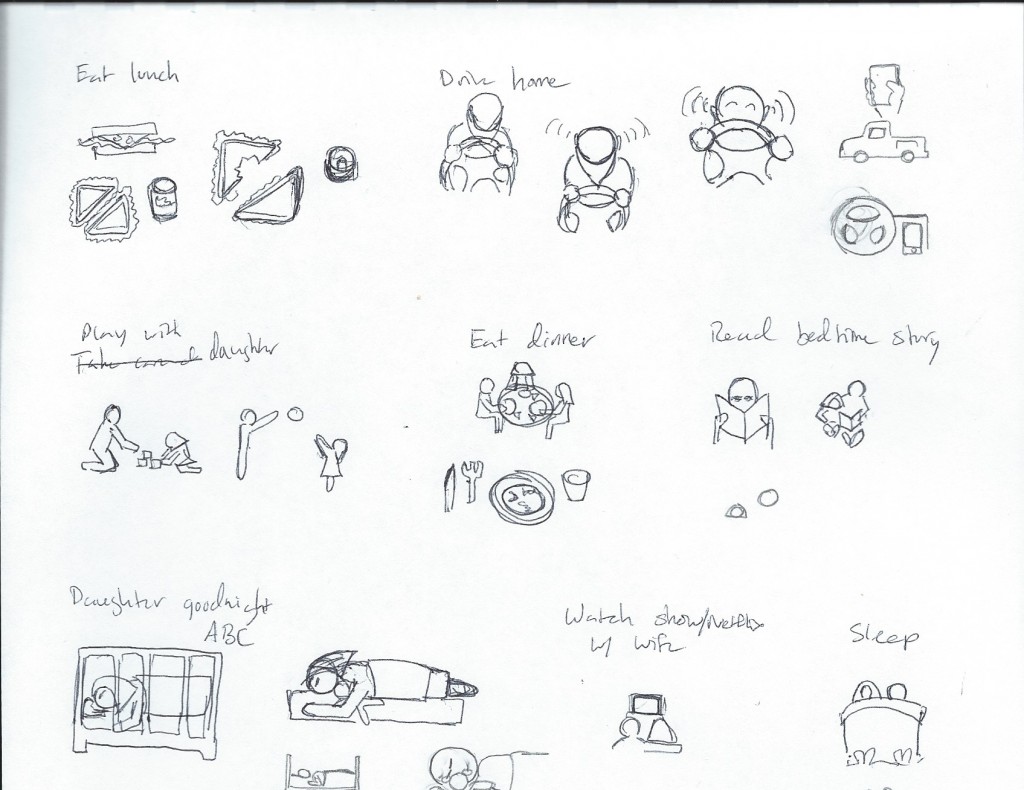 Eat lunch
Drive home
Play with
Take care of daughter
Eat dinner
Read bedtime story
Daughter goodnight
ABC
Watch show/netflix
w/ wife
Sleep